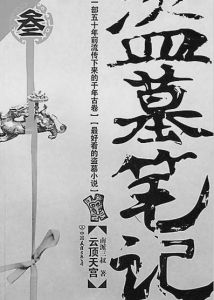 盗墓笔记
叁
一部五十年前流传下来的千年古卷】【最好看的盗墓小说】
南派三叔 著
【云顶天宫】